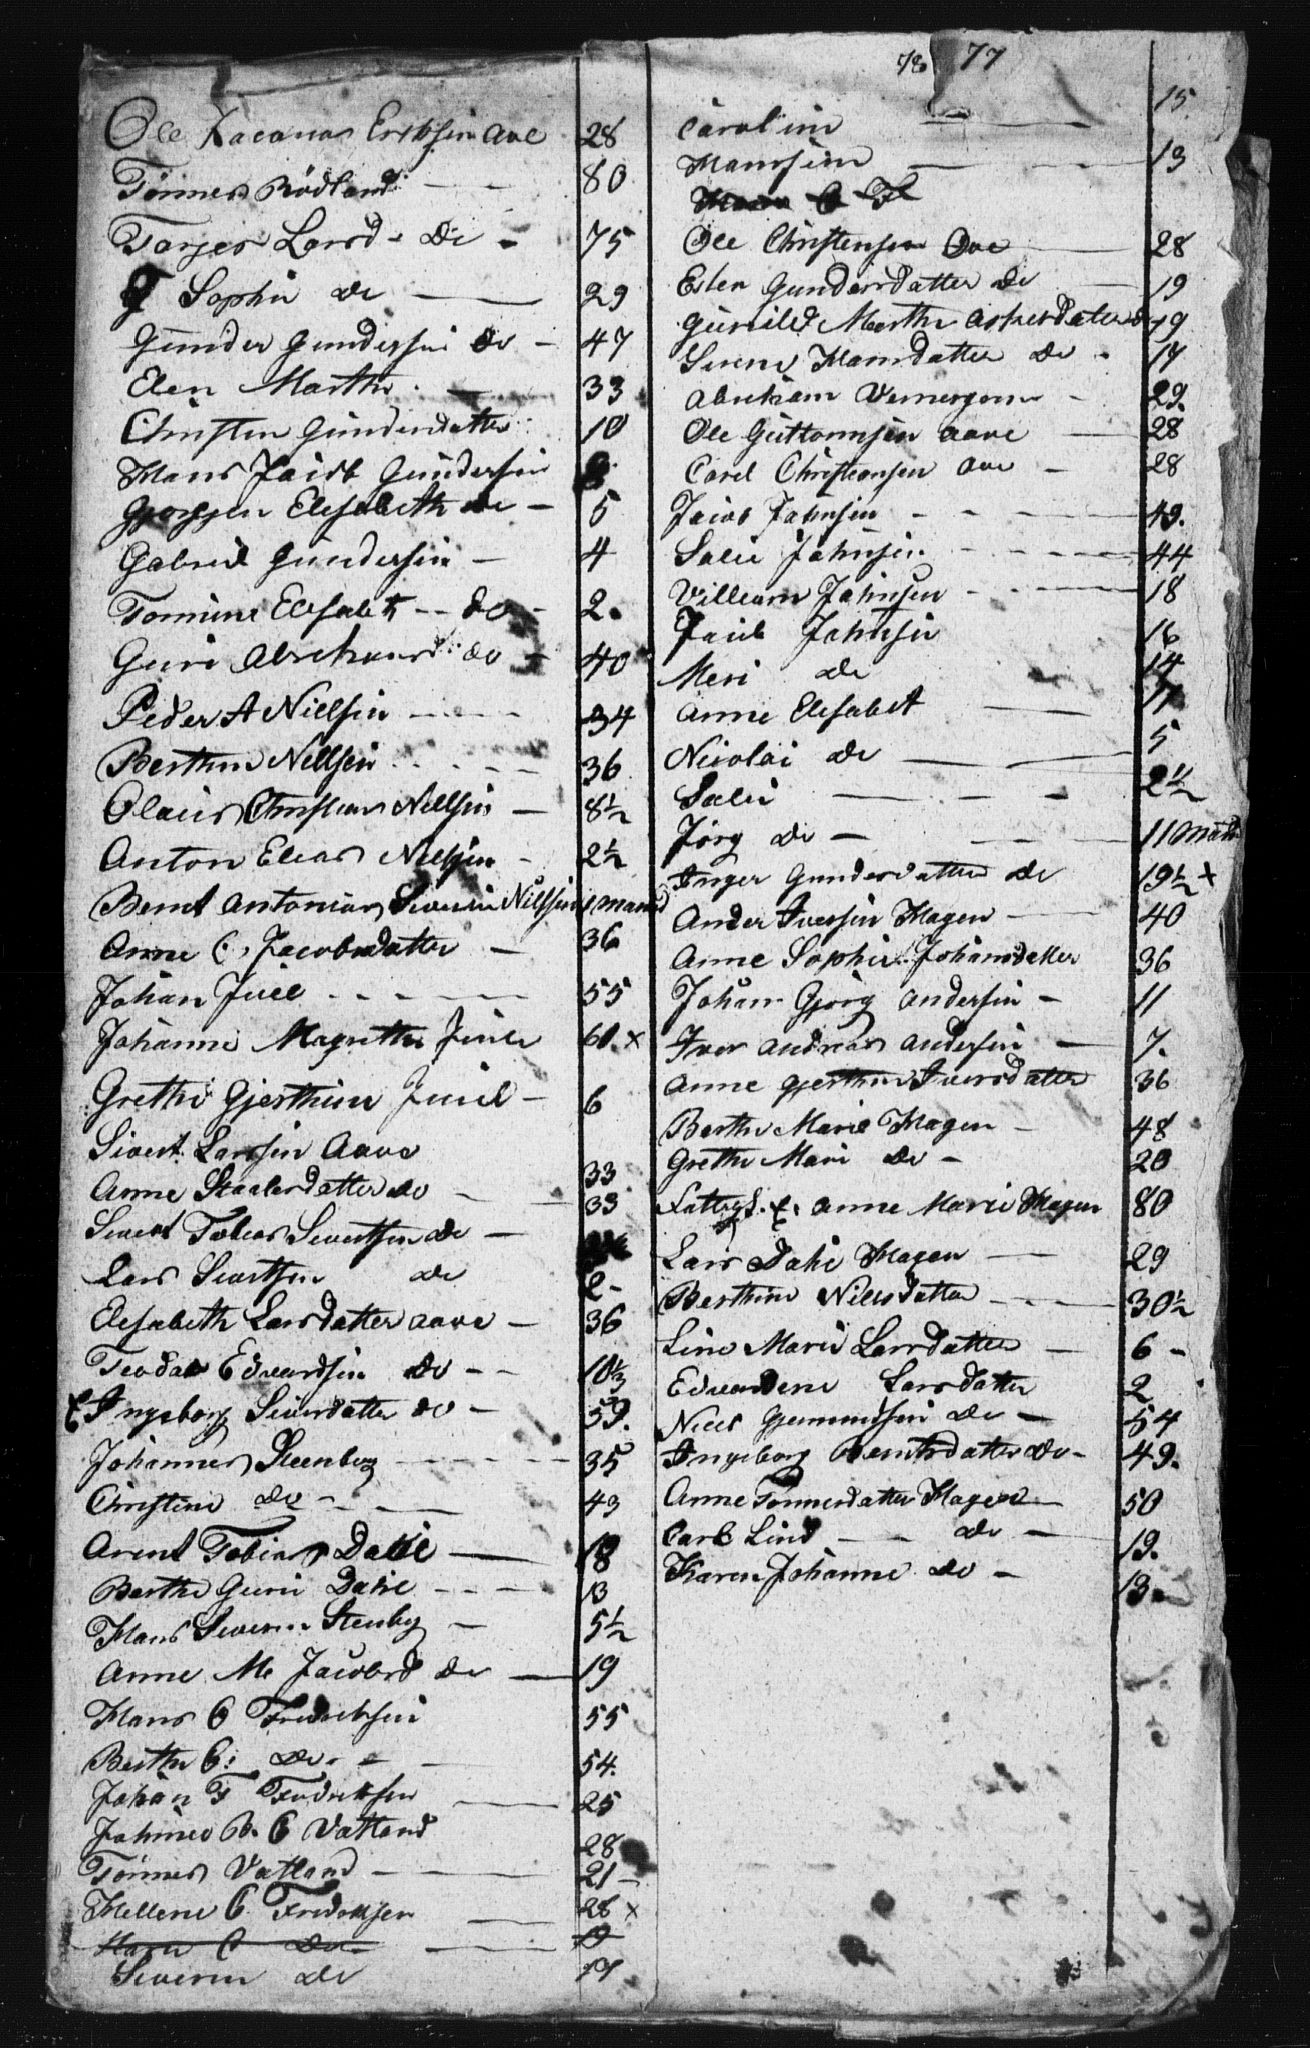 78 77
Ole Zacarias Eriksen Ave 28
Tønnes Rødland 80
Tarjer Larsd de 75
Sophie de 29
Gunder Gundersen de 47
Elen Marthe 33
Christin Gundersdatter 10
Hans Jacob Gundersen
Gjorgjen Elisabeth de 5
Gabriel Gundersen 4
Tomine Elisabet do 2
Guri Abrehams do 40
Peder A Nielsen 34
Berthine Nellsen 36
Olaus Christian Nellsen 8½
Anton Elias Nellsen 2½
Bernt Antonius Severin Nilsen 1 maand
Anne C. Jacobsdatter 36
Johan Juel 55
Johanne Magrethe Juul 60 x
Grethe Gjerthine Juul 6
Sivert Larsen Aave 33
Anne Staalesdatter do 33
Sivert Tobias Sivertsen de
Lars Sivertsen de 2
Elisabeth Larsdatter aave 36
Teodor Edvardsen do 10⅓
Ingeborg Siversdatter do 59.
Johannes Steenberg 35
Christine do 43
Arent Tobias Dahl 18
Berthe Guri Dahl 13
Hans Severin Stenberg 5½
Anne M. Jacobsd de 19
Hans C Fredriksen 55
Berthe C: do 54.
Johan F Fredriksen 25
Johanes B. C Vatland 28
Tønnes Vatland 21
Hellene C Fredriksen 28 x
Hans C do 19
Severin de 14
Caroline 15.
Hansine 13
Ole Christensen Ave 28
Ellen Gundersdatter de 19
Gunild Marthe Askersdater 19
Sirene Hansdatter de 17
Abraham Vernersen 29.
Ole Guttormsen aave 28
Carel Christiansen ave 28
Jacob Jahnsen 49.
Salie Jahnsen 44
Villeam Jahnsen 18
Jacob Jahnsen 16
Meri de 14
Anne Elisabet 17
Nicolai de 5
Salie 2½
Jørg de 11 Mdr
Inger Gundersdatter de 19½ x
Ander Iversen Hagen 40
Anne Sophie Johansdatter 36
Johan Gjørg Andersen 11
Iver Andreas Andersen 7.
Anne Gjerthine Iversdatter 36
Berthe Marie Hagen 48
Grethe Mari de 20
Fattigl. E. Anne Marie Hagen 80
Lars Dahl Hagen 29
Berthine Nielsdatter 30½
Line Marie Larsdatter 6
Edvardine Larsdatter 2
Niels Gjemundsen de 54
Ingeborg Berntsdatter do 49.
Anne Tønnesdatter Hagen 50
Carl Lind de 19.
Karen Johanne do 13